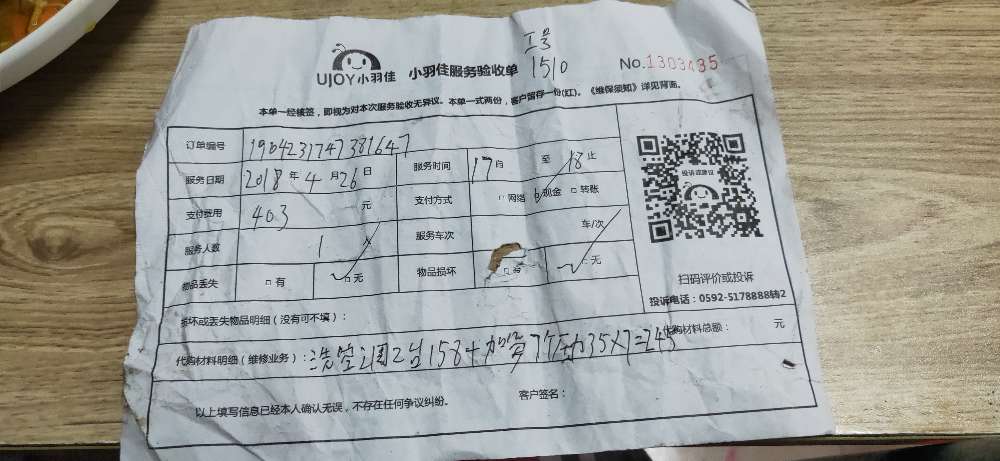 工号
1510
UJOY小羽佳 小羽佳服务验收单 No.1303435
本单一经核签，即视为对本次服务验收无异议。本单一式两份，客户留存一份(红)。《维保须知》详见背面。
订单编号 1904231747381647
服务日期 2018年4月26日 服务时间 17自 至 18止
支付费用 403 元 支付方式 □网络 □现金 □转账
服务人数 1 人 服务车次 车/次
物品丢失 □有 □无 物品损坏 □无
投诉或建议
扫码评价或投诉
投诉电话：0592-5178888转2
损坏或丢失物品明细（没有可不填）：
代购材料明细（维修业务）：洗空调2台158+加 7个 35×7=245 代购材料总额： 元
以上填写信息已经本人确认无误，不存在任何争议纠纷。 客户签名：